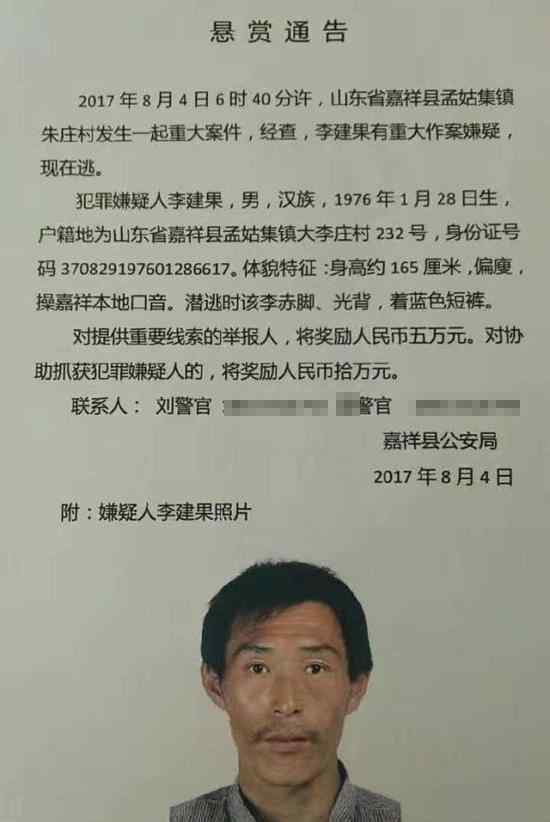 悬赏通告
2017年8月4日6时40分许，山东省嘉祥县孟姑集镇
朱庄村发生一起重大案件，经查，李建果有重大作案嫌疑，
现在逃。
犯罪嫌疑人李建果，男，汉族，1976年1月28日生，
户籍地为山东省嘉祥县孟姑集镇大李庄村232号，身份证号
码370829197601286617。体貌特征：身高约165厘米，偏廋，
操嘉祥本地口音。潜逃时该李赤脚、光背，着蓝色短裤。
对提供重要线索的举报人，将奖励人民币五万元。对协
助抓获犯罪嫌疑人的，将奖励人民币拾万元。
联系人：刘警官 警官
嘉祥县公安局
2017年8月4日
附：嫌疑人李建果照片